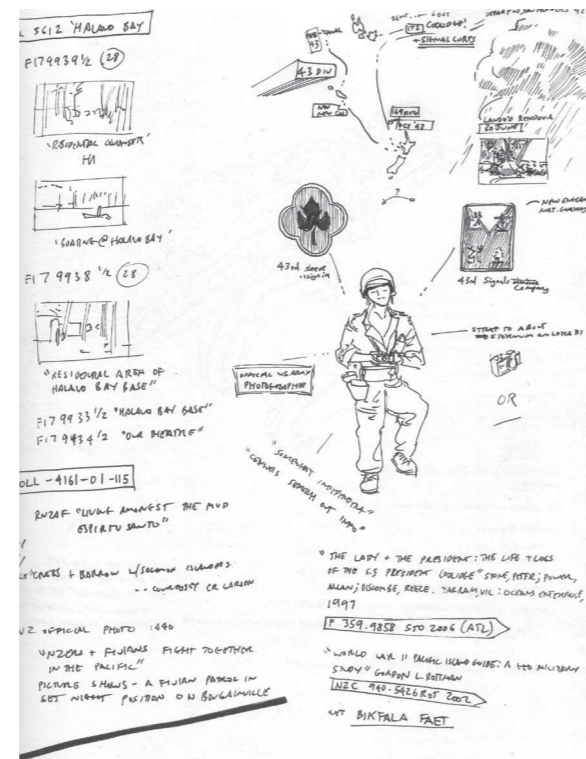 5612 'HALAVO BAY
F179939 1/2 (28)
'RESIDENTIAL QUARTERS'
'LOADING @ HALAVO BAY'
F179938 1/2 (28)
"RESIDENTIAL AREA OF
HALAVO BAY BASE"
F179933 1/2 "HALAVO BAY BASE"
F179934 1/2 "OUR THEATRE"
OLL - 4161-01-115
RNZAF "LIVING AMONGST THE MUD
ESPIRITU SANTO"
+ BARROW W/SOLOMON ISLANDERS
-- COURTESY CR LARSON
NZ OFFICIAL PHOTO 1440
"NZERS + FIJIANS FIGHT TOGETHER
IN THE PACIFIC"
PICTURE SHOWS - A FIJIAN PATROL IN
SET NIGHT POSITION ON BOUGAINVILLE
172 COOLIDGE'
+ SIGNAL CORPS
43 DIV
OCT '42
LAND @ RENDOVA
30 JUNE
?
43rd sleeve
insignia
NEW ENGLAND
NAT. GUARD
43rd Signals
Company
OFFICIAL US ARMY
PHOTOGRAPHER
OR
"SOMEWHAT INDEPENDENT"
"THE LADY + THE PRESIDENT: THE LIFE + LOSS
OF THE S.S PRESIDENT COOLIDGE" STONE, PETER; POWER,
ALLAN; DISCOMBE, REECE. YARRAM, VIC: OCEANS ENTERPRISE,
1997
P 359.9858 STO 2006 (ATL)
"WORLD WAR II PACIFIC ISLAND GUIDE: A GEO MILITARY
STUDY" GORDON L. ROTTMAN
NZC 940.5426 ROT 2002
BIKFALA FAET